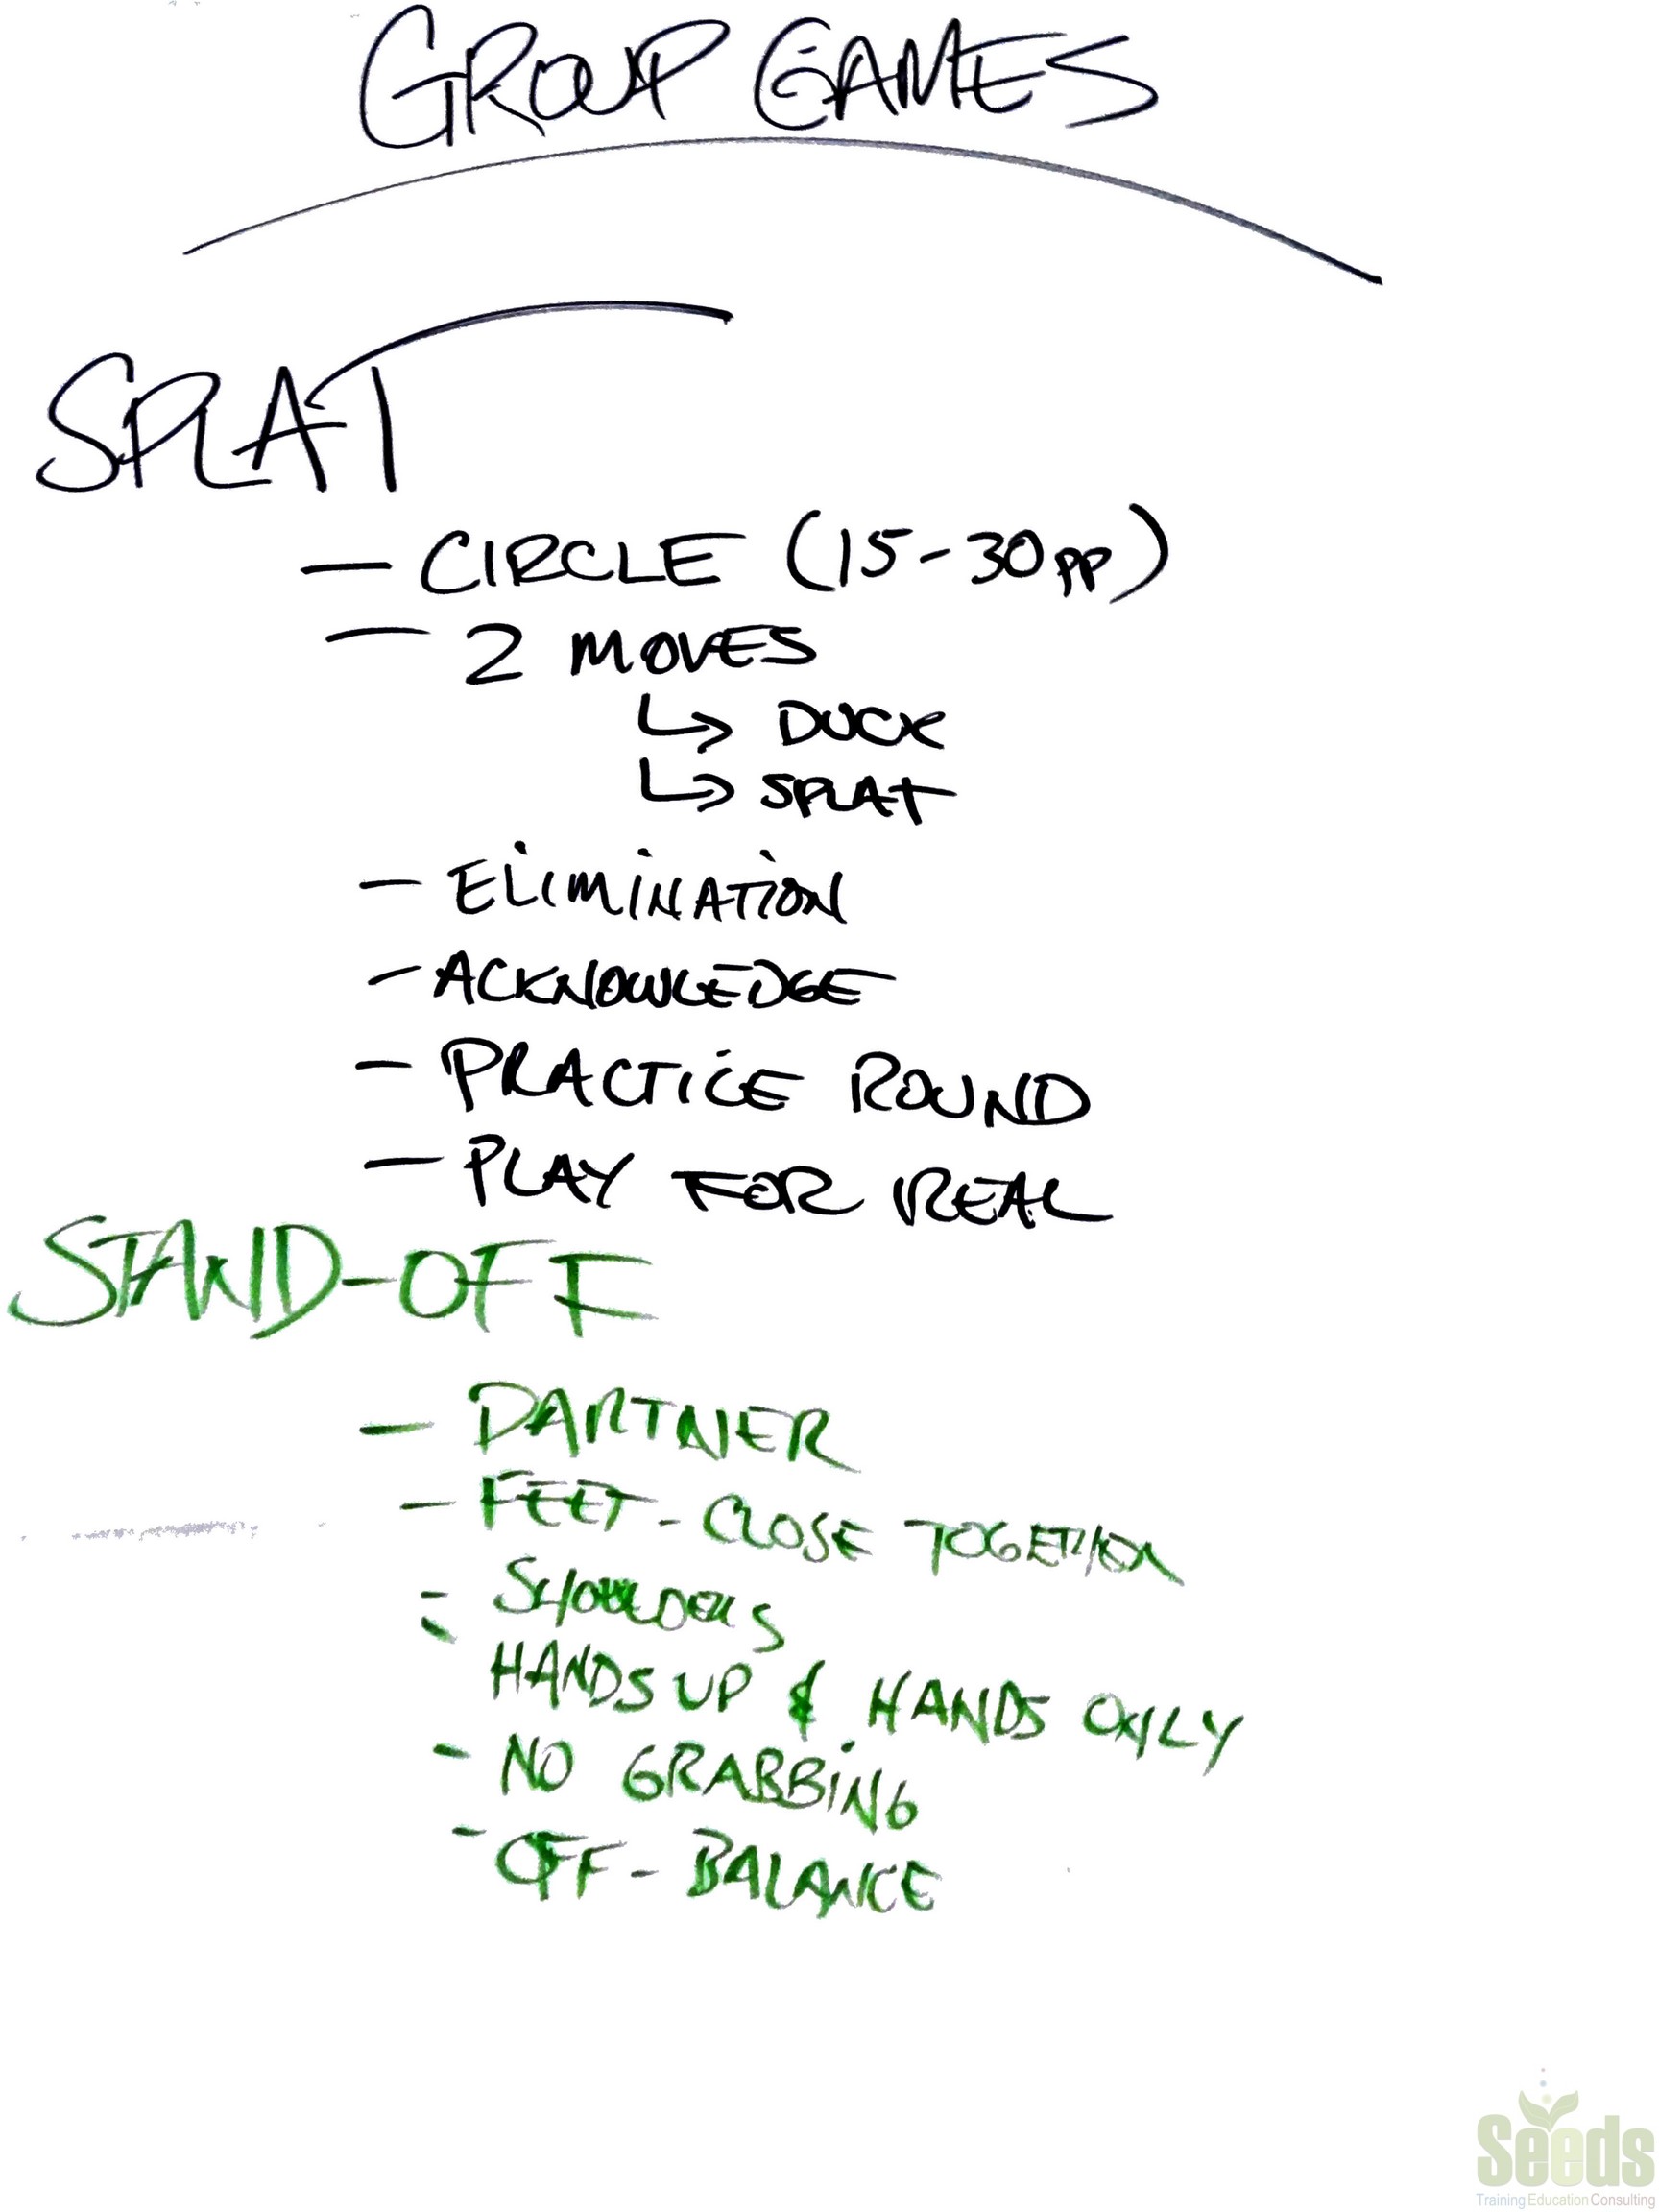 GROUP GAMES
SPLAT
- CIRCLE (15-30pp)
- 2 MOVES
↳ DUCK
↳ SPLAT
- ELiMiNATiON
- ACKNOWLEDGE
- PRACTiCE ROUND
- PLAY FOR REAL
STAND-OFF
- PARTNER
- FEET - CLOSE TOGETHER
- SHOULDERS
- HANDS UP & HANDS ONLY
- NO GRABBiNG
- OFF-BALANCE
Seeds
Training Education Consulting